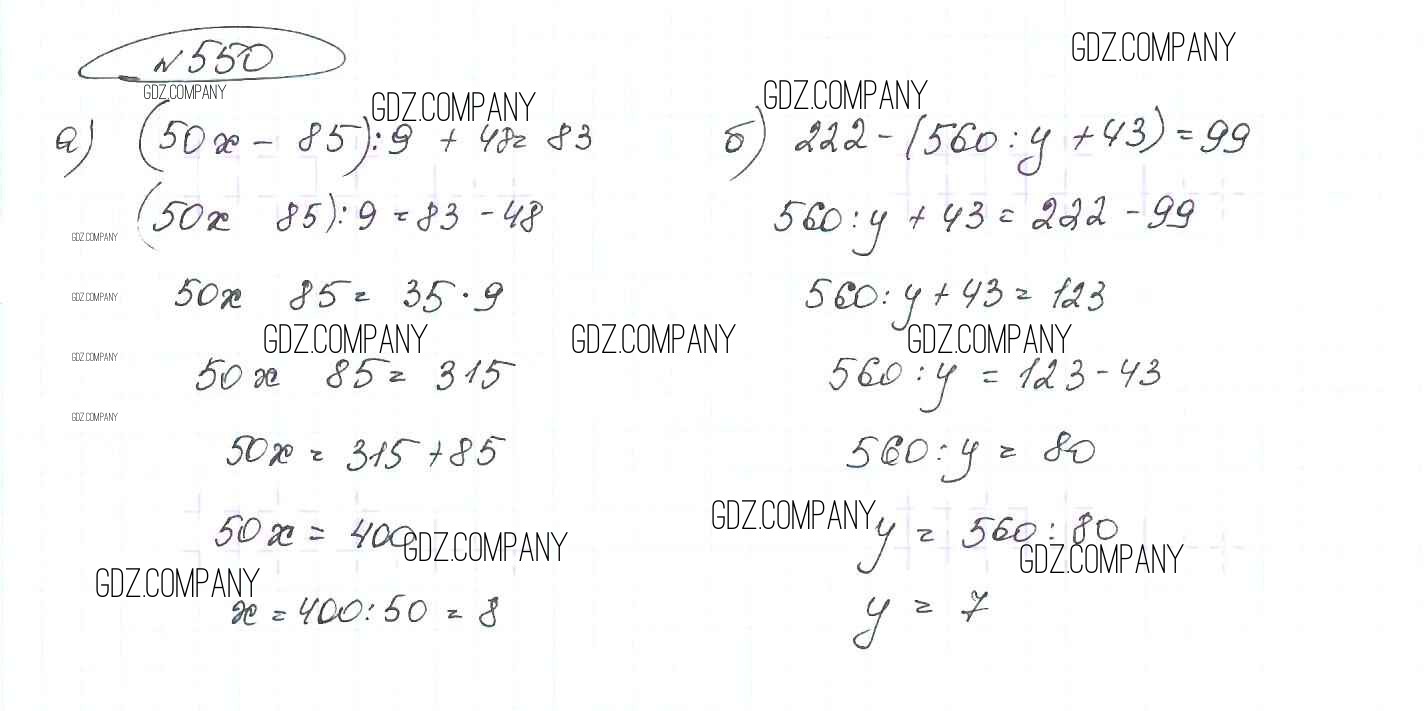 GDZ.COMPANY
№550
GDZ.COMPANY
GDZ.COMPANY
GDZ.COMPANY
а) (50x - 85):9 + 48 = 83
(50x 85):9 = 83 - 48
GDZ.COMPANY
50x 85 = 35·9
GDZ.COMPANY
GDZ.COMPANY
50x 85 = 315
GDZ.COMPANY
GDZ.COMPANY
50x = 315 + 85
50x = 400
GDZ.COMPANY
GDZ.COMPANY
x = 400:50 = 8
б) 222 - (560:y + 43) = 99
560:y + 43 = 222 - 99
560:y + 43 = 123
GDZ.COMPANY
GDZ.COMPANY
560:y = 123 - 43
560:y = 80
GDZ.COMPANY
y = 560:80
GDZ.COMPANY
y = 7